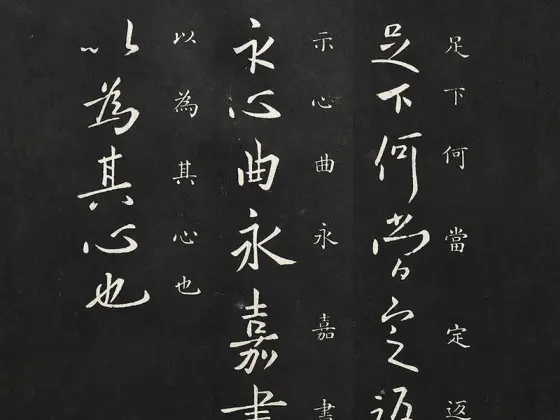 足下何當定返
足下何當定返
示心曲永嘉書
示心曲永嘉書
以為其心也
以為其心也